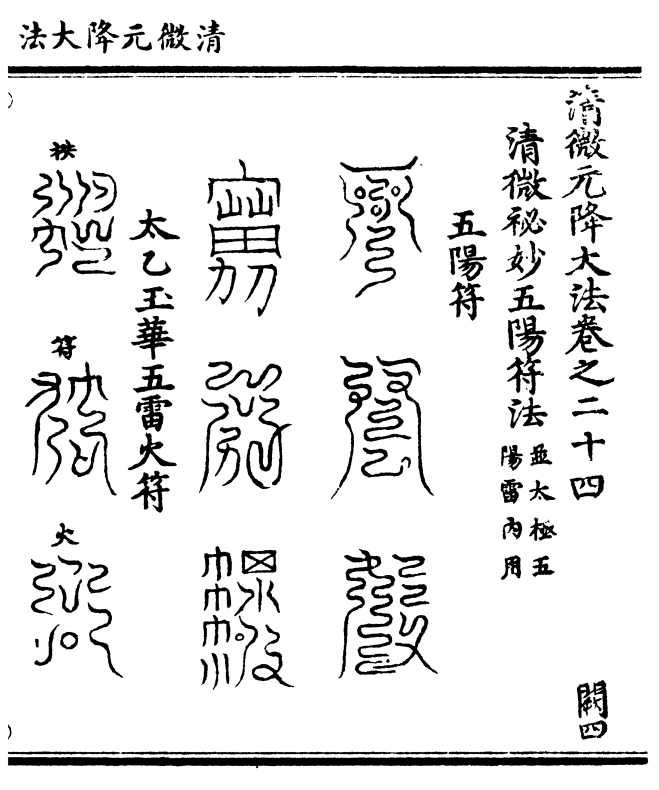 清微元降大法
清微元降大法卷之二十四
清微祕妙五陽符法
並太極五
陽雷內用
五陽符
太乙玉華五雷火符
符
火
闕四